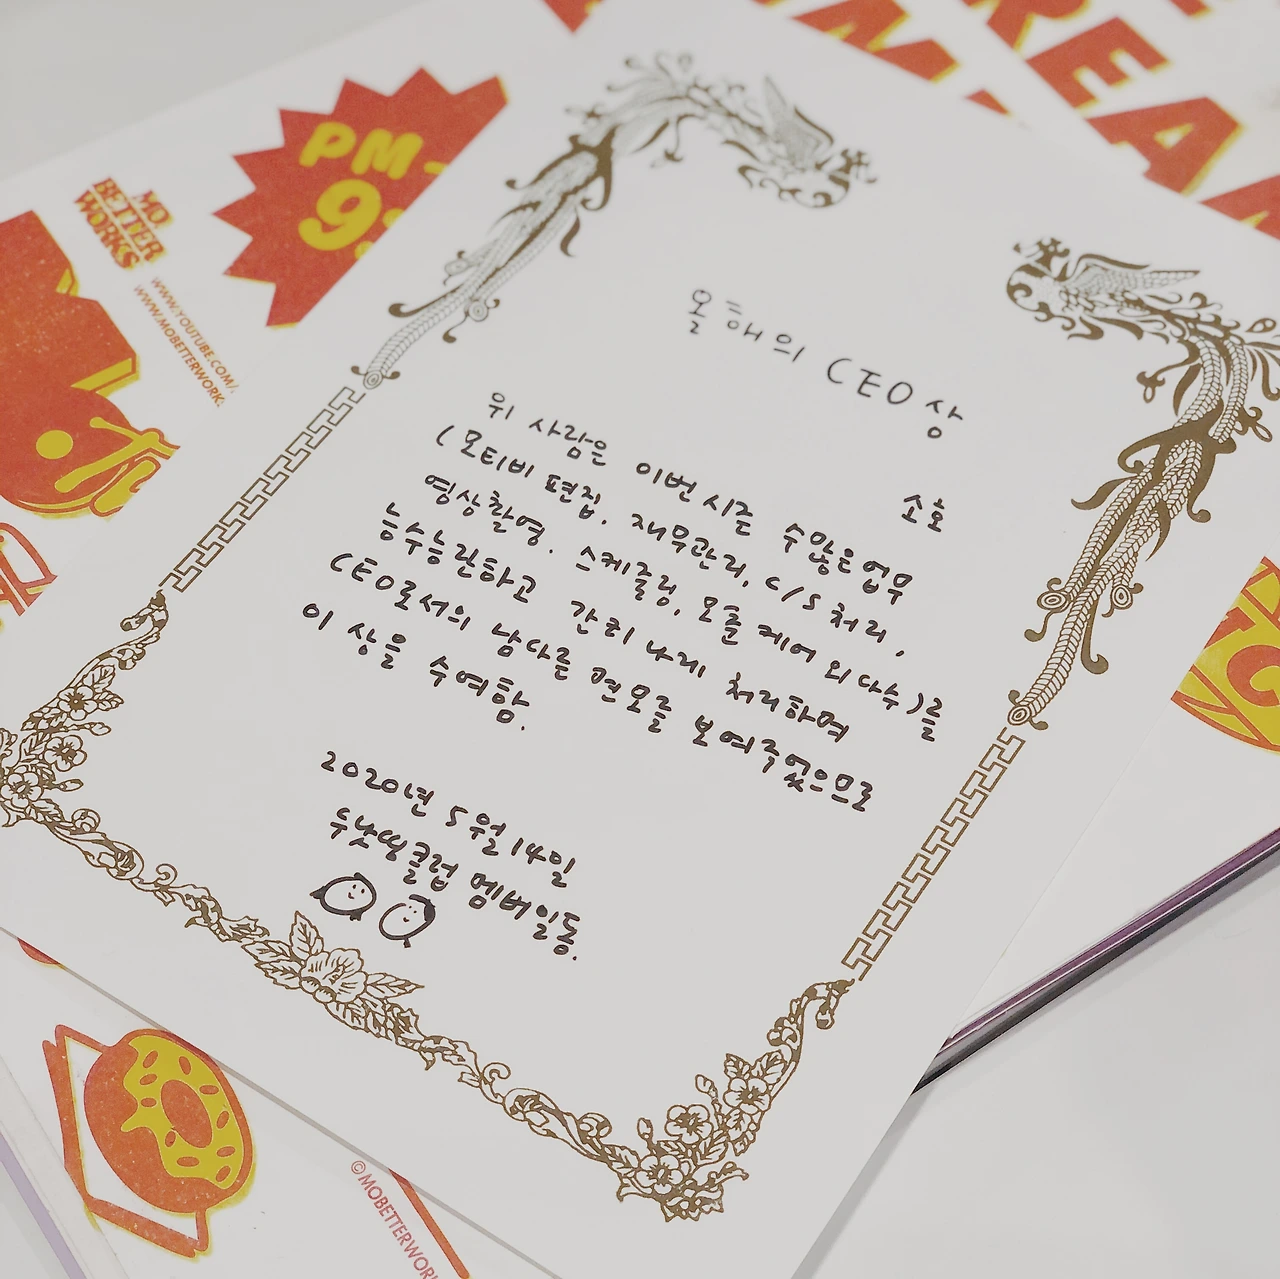 PM
9:
MO.
BETTER
WORKS
WWW.YOUTUBE.COM/
WWW.MOBETTERWORK
REA
올해의 CEO 상
소호
위 사람은 이번 시즌 수많은 업무
(모티비 편집, 재무관리, C/S 처리,
영상촬영, 스케줄링, 모춘 케어 외 다수)를
능수능란하고 간지 나게 처리하며
CEO로서의 남다른 면모를 보여주었으므로
이 상을 수여함.
2020년 5월 14일
두낫띵클럽 멤버 일동.
©MOBETTERWOR